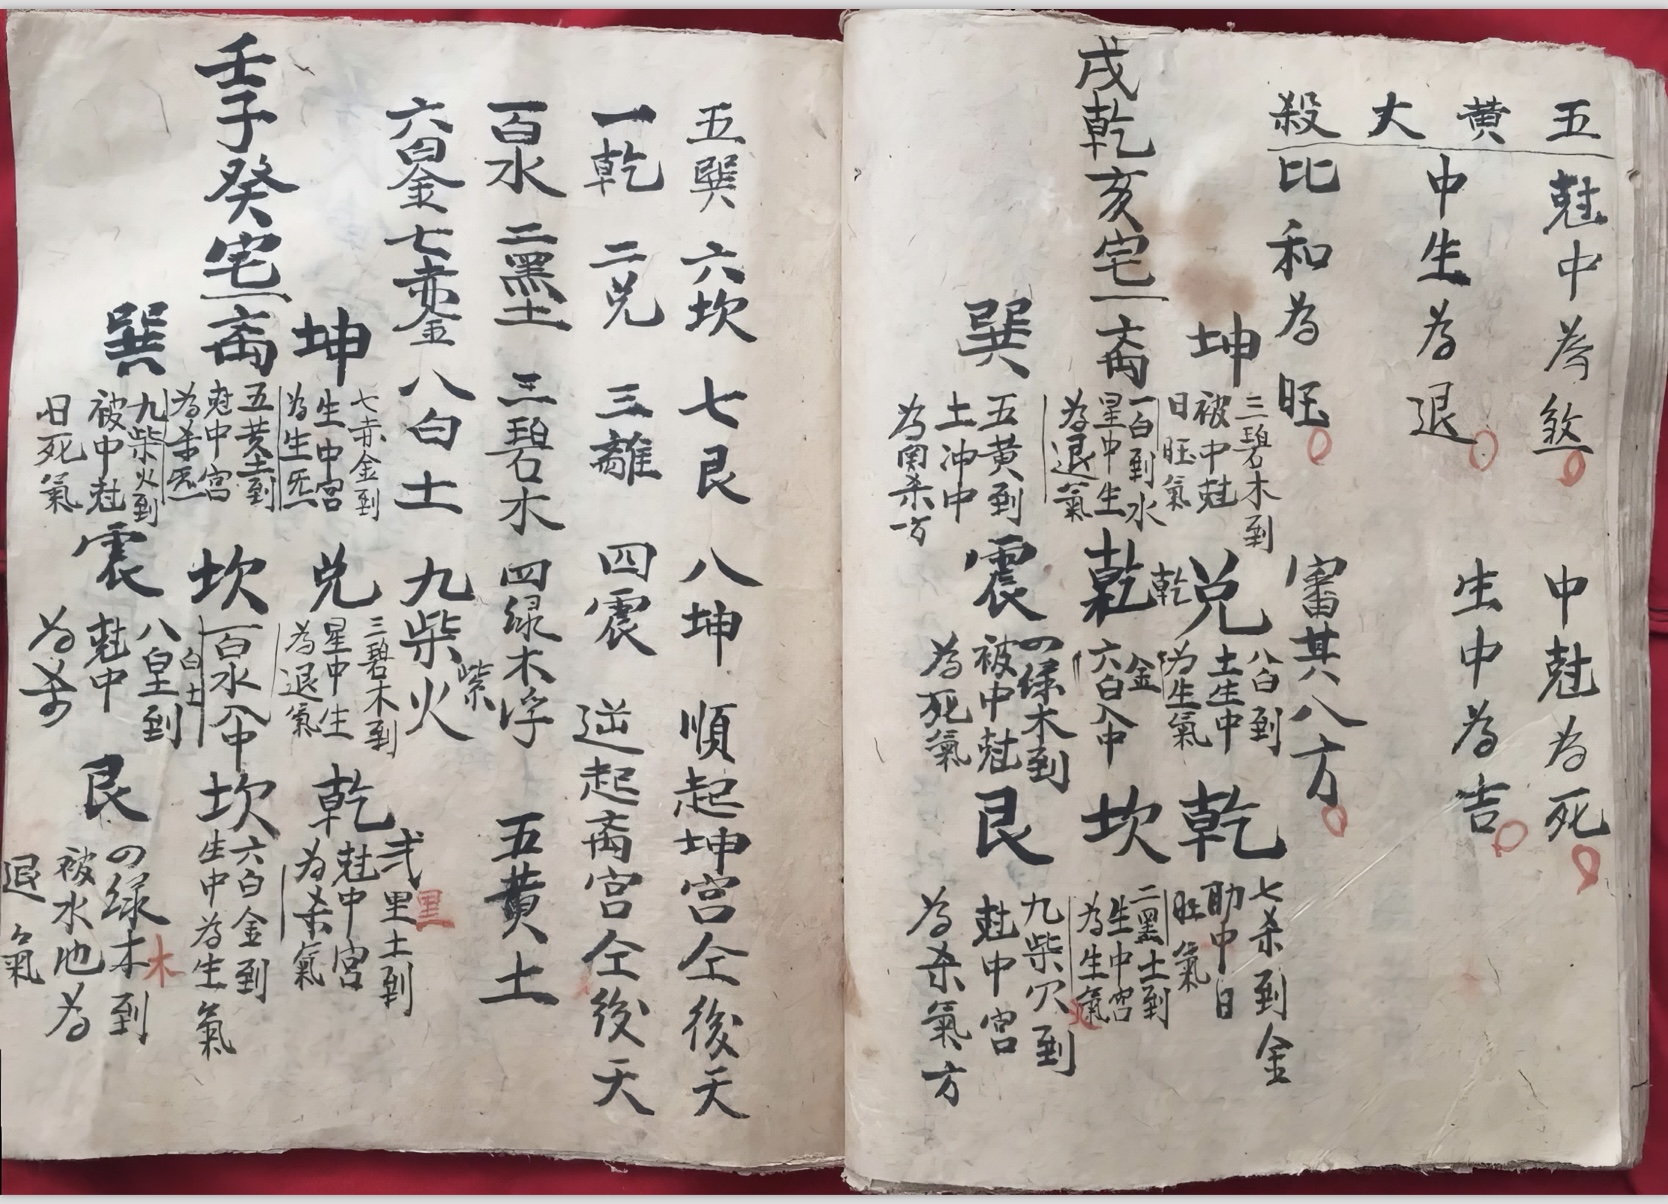 五黄大殺
尅中為煞
中尅為死
中生為退
生中為吉
比和為旺
審其八方
坤
三碧木到
被中尅
日旺氣
兌
八白到
土生中
為生氣
乾
七杀到金
助中曰
旺氣
戌乾亥宅一
一白到水
星中生
為退氣
乾
乾
金
六白入中
坎
二黑土到
生中宮
為生氣
巽
五黄到
土冲中
為関杀方
震
四绿木到
被中尅
為死氣
艮
九柴穴到
火
尅中宮
為杀氣方
五巽 六坎 七艮 八坤 順起坤宮仝後天
一乾 二兑 三離 四震 逆起离宮仝後天
一百水 二黑土 三碧木 四绿木浮 五黄土
六白金 七赤金 八白土 九柴火
紫
坤
七赤金到
生中宮
為生炁
兌
三碧木到
星中生
為退氣
乾
弍里土到
黑
尅中宮
為杀氣
壬子癸宅一
五黄土到
尅中宮
為杀炁
坎
一百水入中
白土
坎
六白金到
生中為生氣
巽
九柴火到
被中尅
曰死氣
震
八皇到
尅中
為杀
艮
四绿木到
木
被水也為
退氣